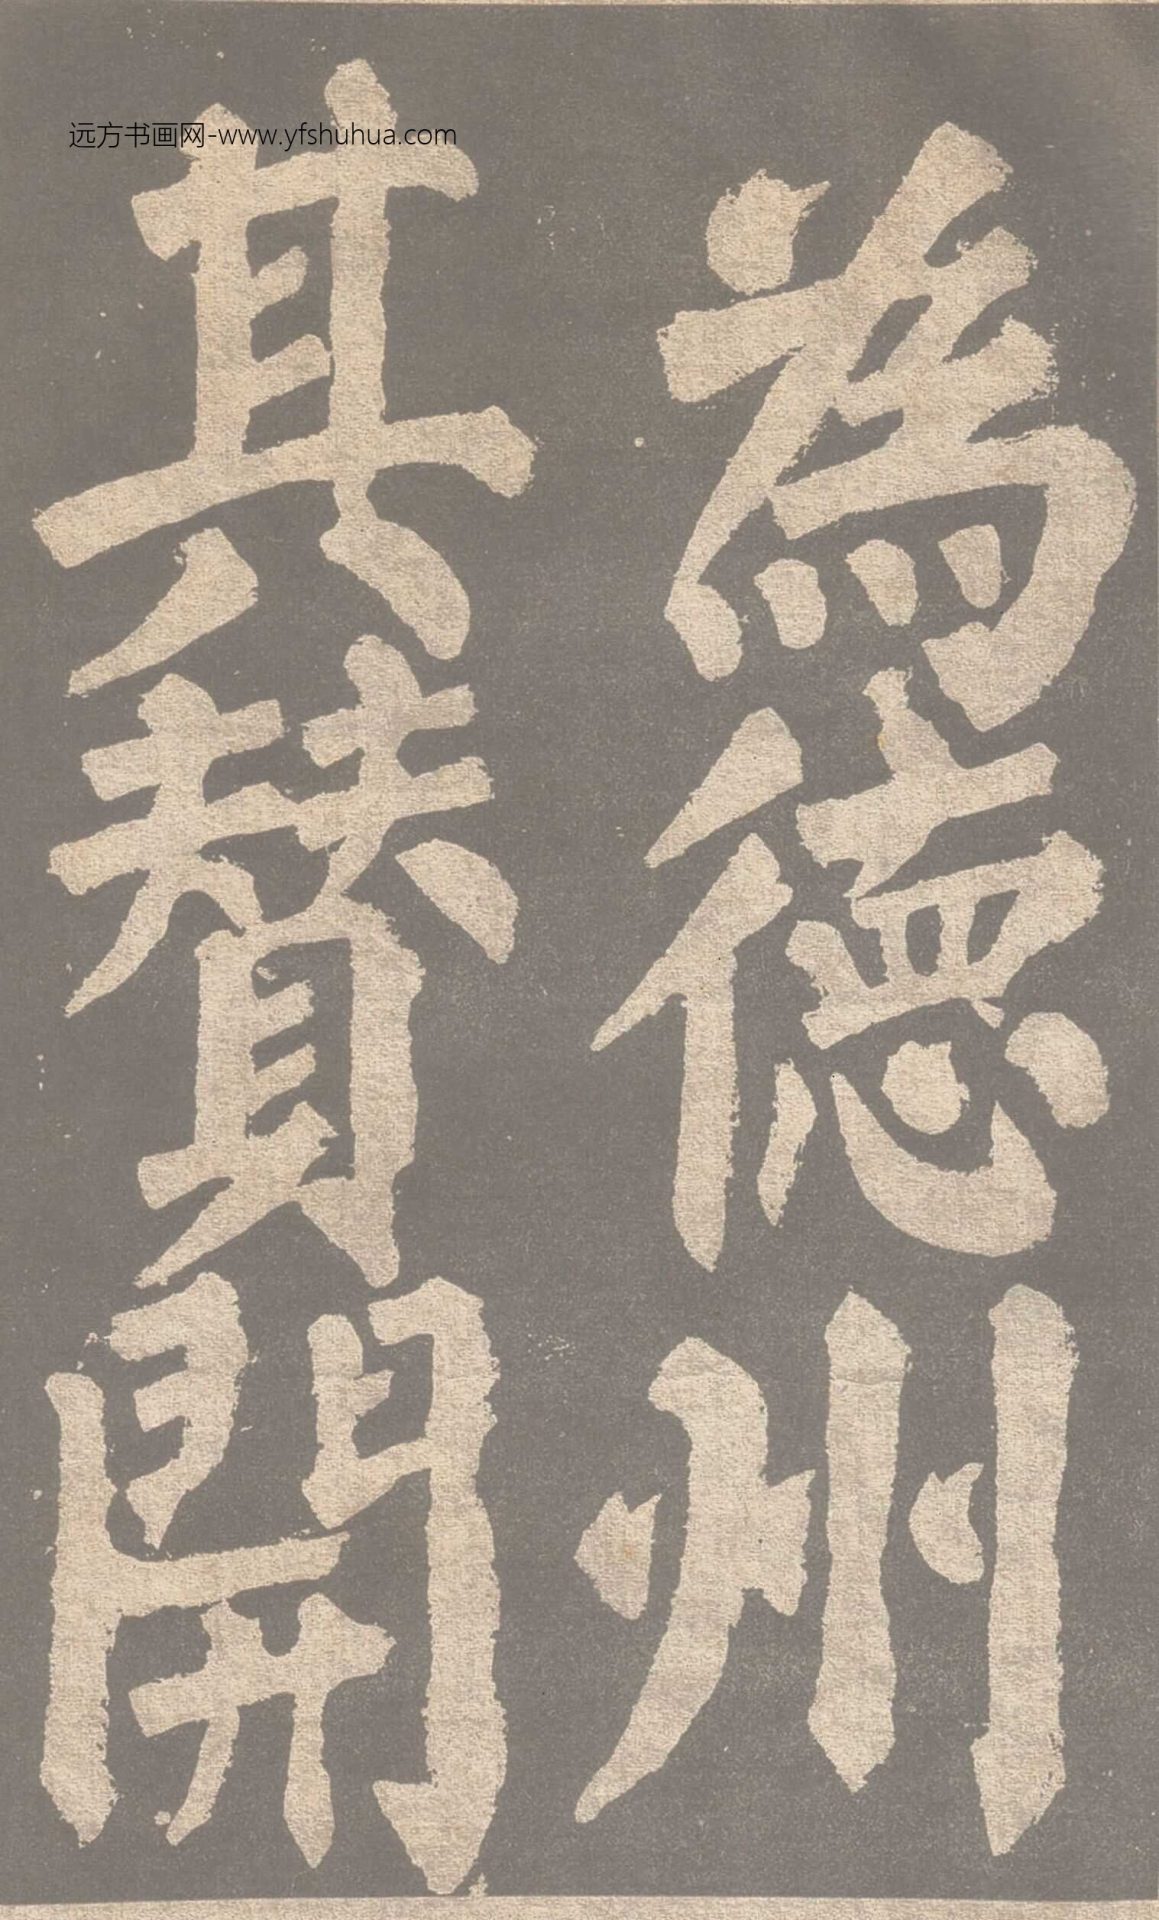 為德州
其贊開
远方书画网-www.yfshuhua.com